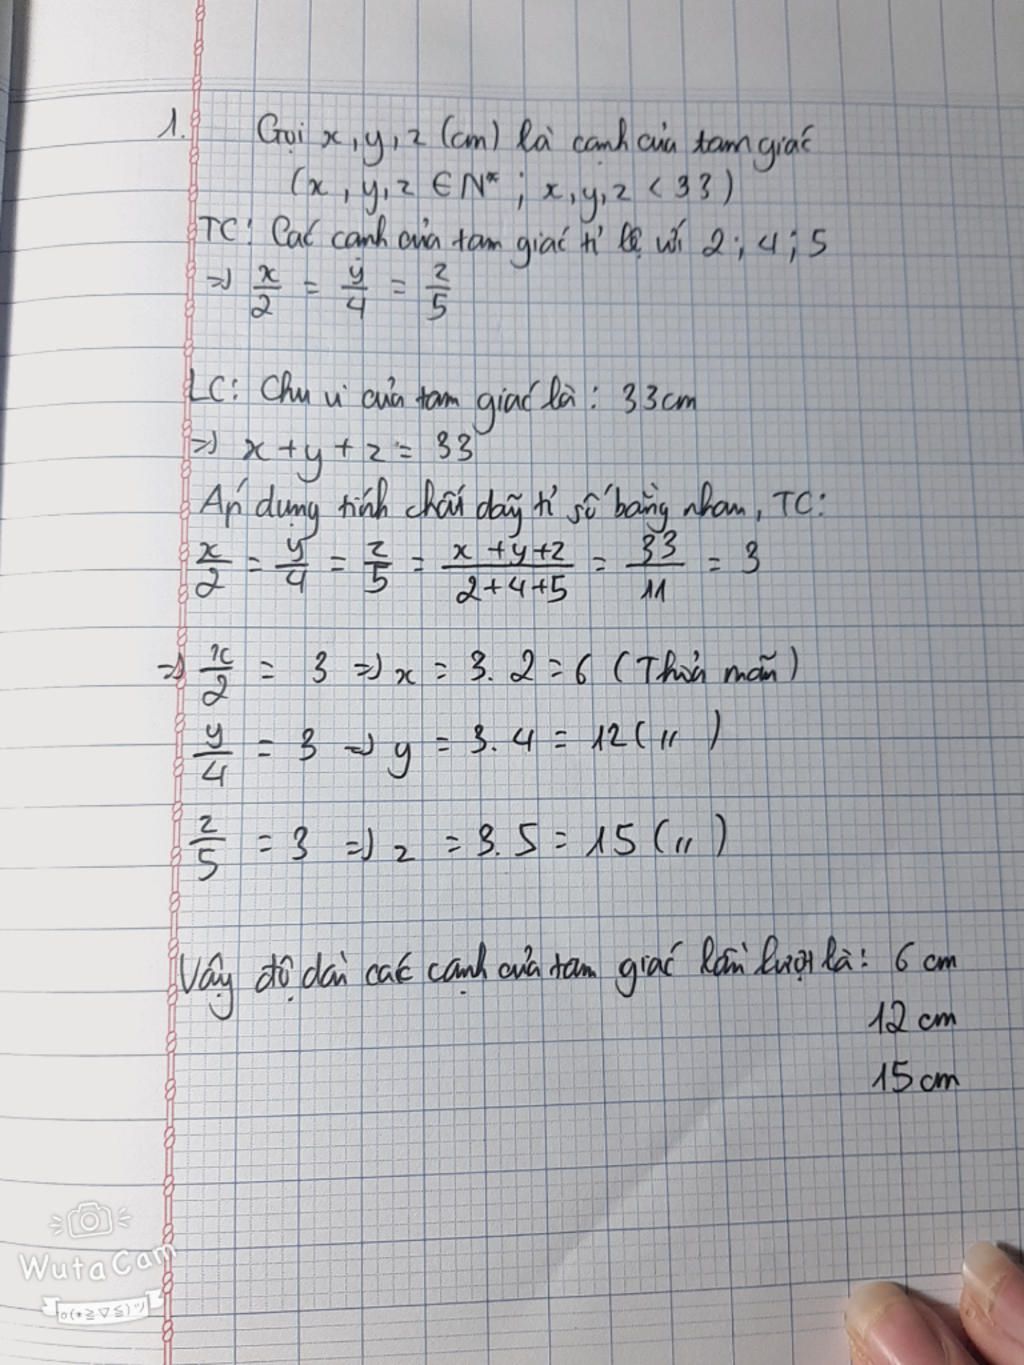 1. Gọi x, y, z (cm) là cạnh của tam giác
(x, y, z ∈ N* ; x, y, z < 33)
TC: Các cạnh của tam giác tỉ lệ với 2; 4; 5
=> x/2 = y/4 = z/5
LC: Chu vi của tam giác là: 33cm
=> x + y + z = 33
Áp dụng tính chất dãy tỉ số bằng nhau, TC:
x/2 = y/4 = z/5 = (x + y + z)/(2 + 4 + 5) = 33/11 = 3
=> x/2 = 3 => x = 3.2 = 6 (Thỏa mãn)
y/4 = 3 => y = 3.4 = 12 (〃)
z/5 = 3 => z = 3.5 = 15 (〃)
Vậy độ dài các cạnh của tam giác lần lượt là: 6 cm
12 cm
15 cm
WutaCam
o(*≧▽≦)ツ